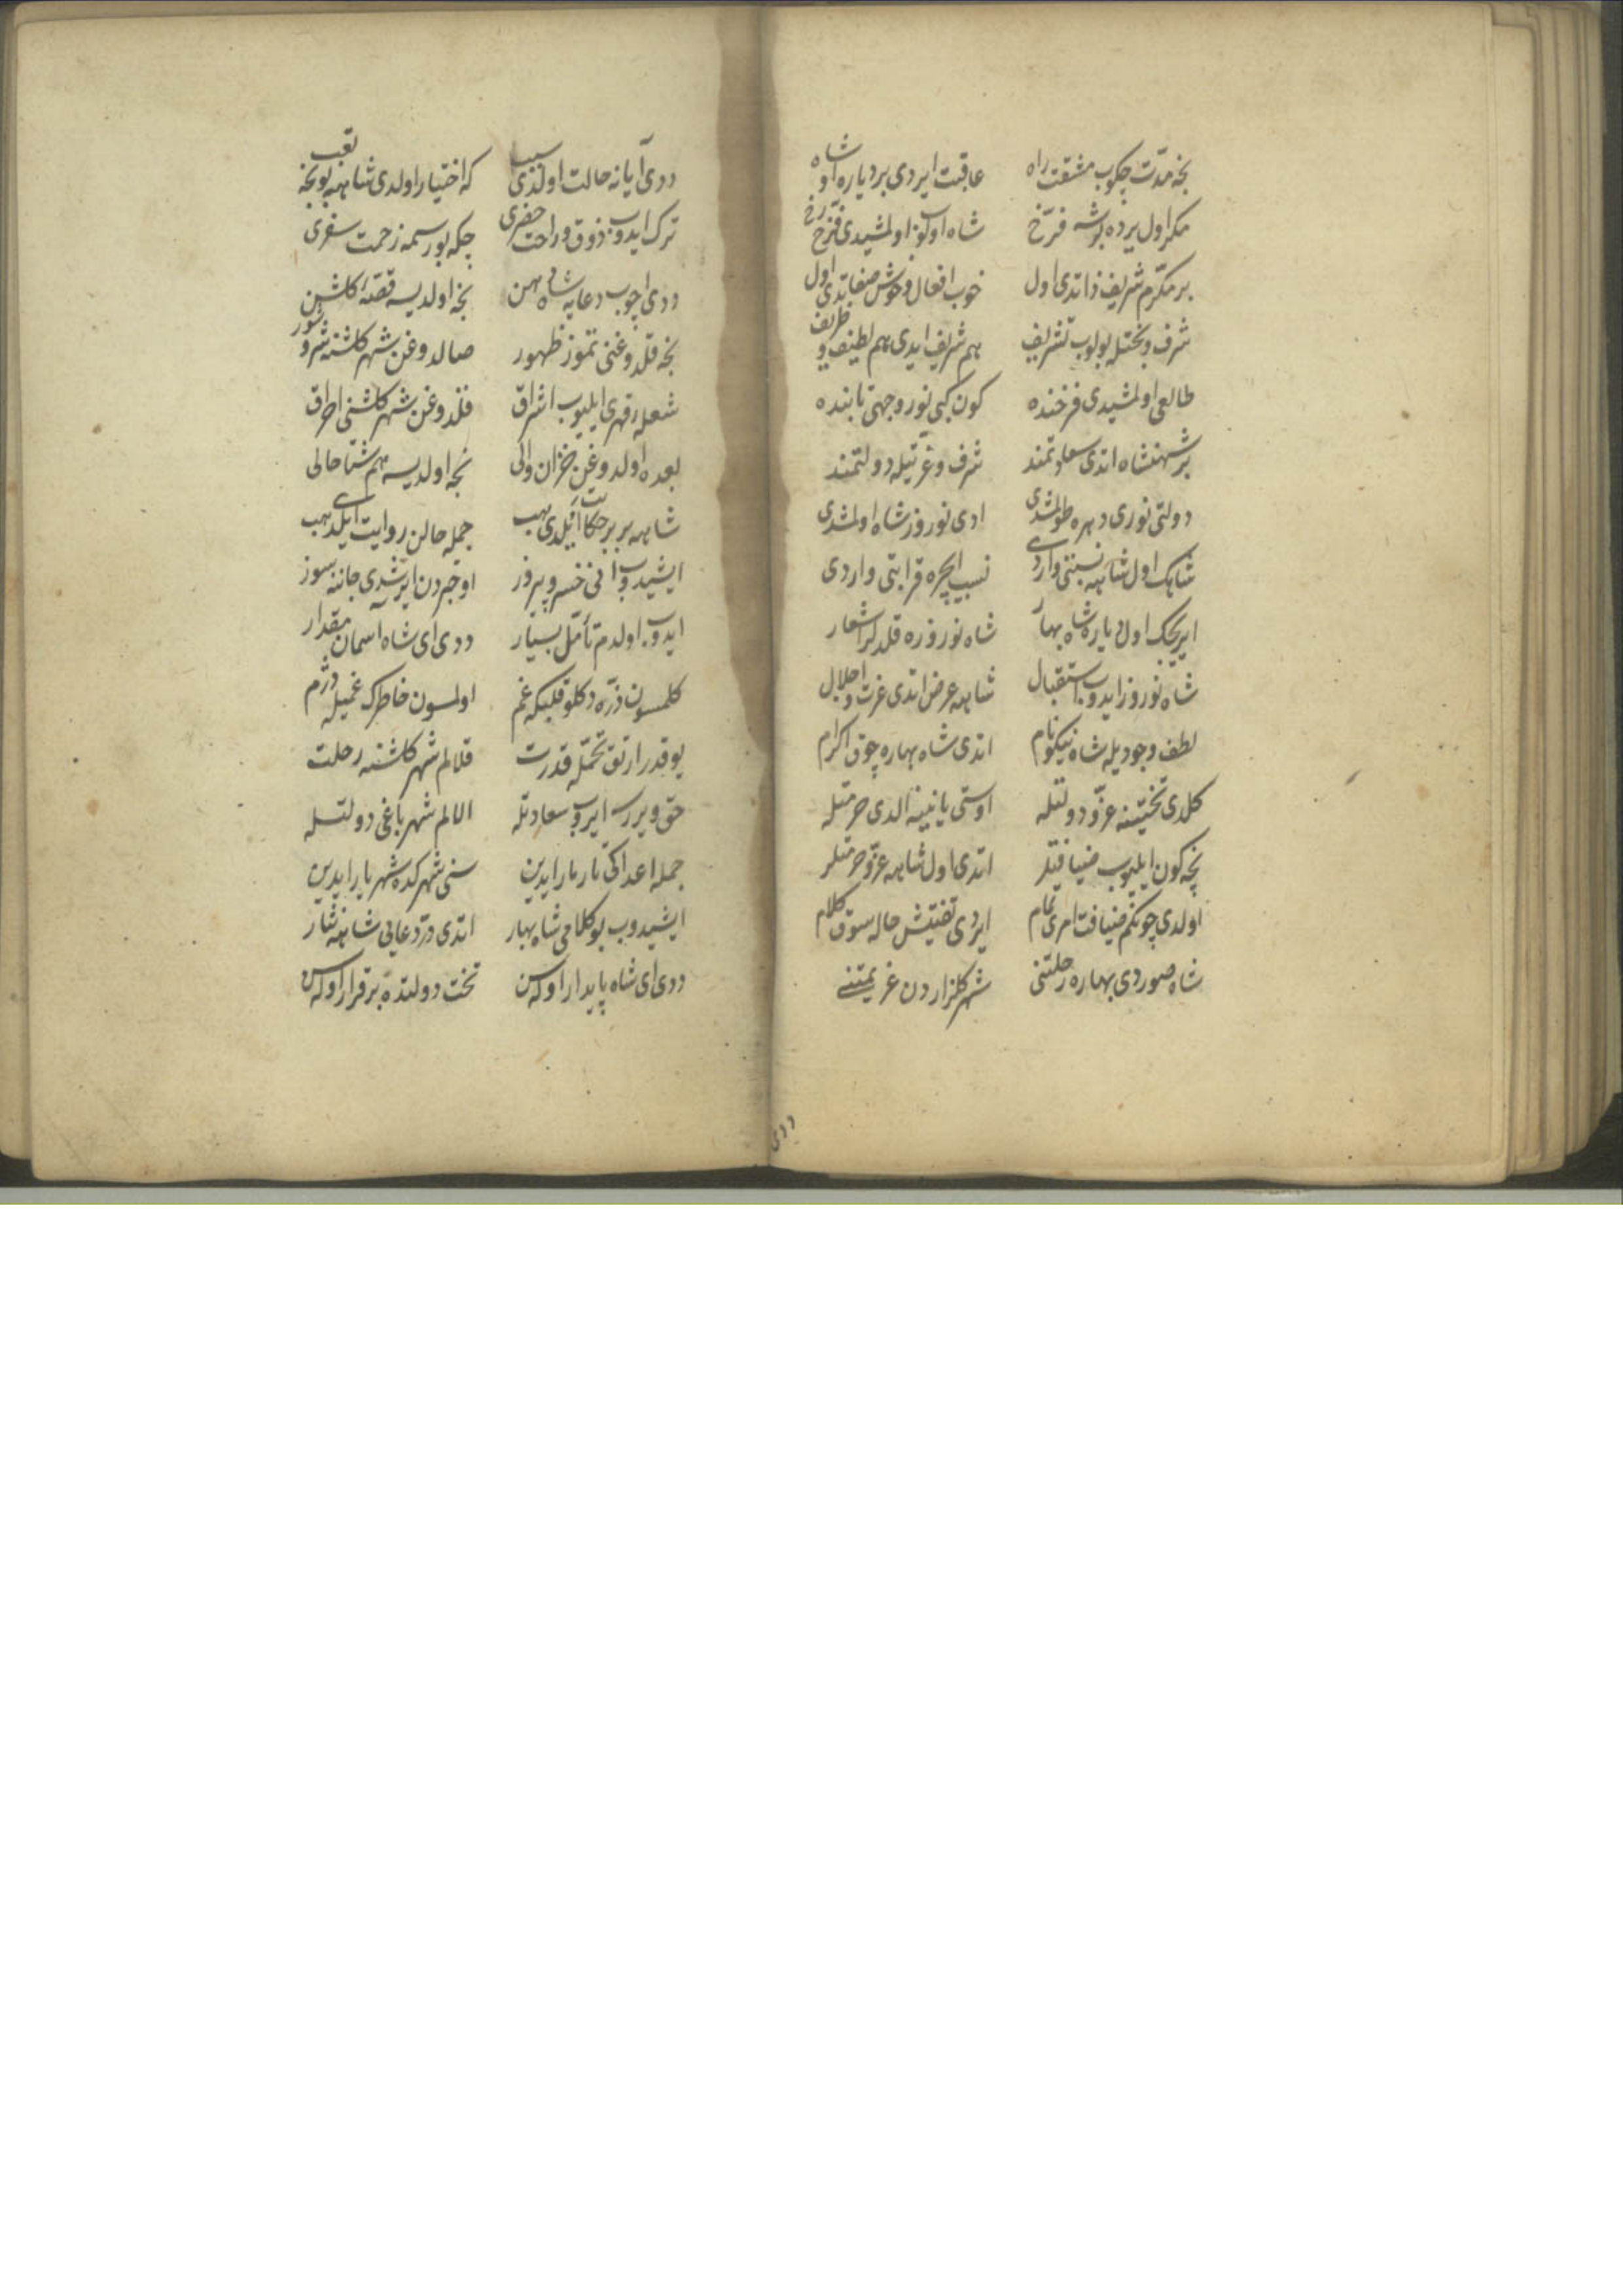 نجه مدت چكوب مشقت راه عاقبت ايردى بر دياره او شاه
مكر اول يرده بر شه فرخ شاه اولوب اولمشيدى فرخ رخ
بر مكرم شريف ذاتدى اول خوب افعال و خوش صفاتدى اول
شرف و بختله بولوب تشريف هم شريف ايدى هم لطيف و ظريف
طالعى اولمشيدى فرخنده كون كبى نور وجهى تابنده
بر شهنشاه اندى سعادتمند شرف و عزتيله دولتمند
دولتى نورى دهره طولمشدى ادى نوروز شاه اولمشدى
شاهك اول شاهه نسبتى واردى نسب ايچره قرابتى واردى
ايريجك اول ياره شاه بهار شاه نوروزه قلدلر اشعار
شاه نوروز ايدوب استقبال شاهه عرض اتدى عزت و اجلال
لطف وجوديله شاه نيكونام اتدى شاه بهاره چوق اكرام
كلدى تختنه عز و دولتله اوستى يانينه الدى حرمتله
نچه كون ايليوب ضيافتلر اتدى اول شاهه عز و حرمتلر
اولدى چونكم ضيافت امرى تمام ايردى تفتيش حاله سوق كلام
شاه صوردى بهاره رحلتنى شهر كلزاردن عزيمتنى
ددى
ددى آيا نه حالت اولدى سبب كه اختيار اولدى شاهه بو نجه تعب
ترك ايدوب ذوق و راحت حضرى چكه بو رسمه زحمت سفرى
ددى اچوب دعايه شاه دهن نجه اولديسه قصهٔ كلشن
نجه قلدوغنى تموز ظهور صالدوغن شهر كلشنه شر و شور
شعلهٔ قهرى ايليوب اشراق قلدوغن شهر كلشنى احراق
بعده اولدوغن خزان والى نجه اولديسه هم شتا حالى
شاهه بر بر حكايت ايلدى هپ جمله حالن روايت ايلدى هپ
ايشيدوب انى خسرو پيروز او خبردن ايرشدى جاننه سوز
ايدوب اولدم تأمل بسيار ددى اى شاه آسمان مقدار
كلمسون ذره دكلو قلبكه غم اولمسون خاطرك غميله دژم
يوقدر ارتق تحمله قدرت قلالم شهر كلشنه رحلت
حق ويررسه ايروب سعادتله الالم شهر باغى دولتله
جمله اعداكى تارمار ايدين سنى شهركده شهريار ايدين
ايشيدوب بو كلامى شاه بهار اتدى در دعايى شاهه نثار
ددى اى شاه پايدار اولاسن تخت دولتده برقرار اولاسن